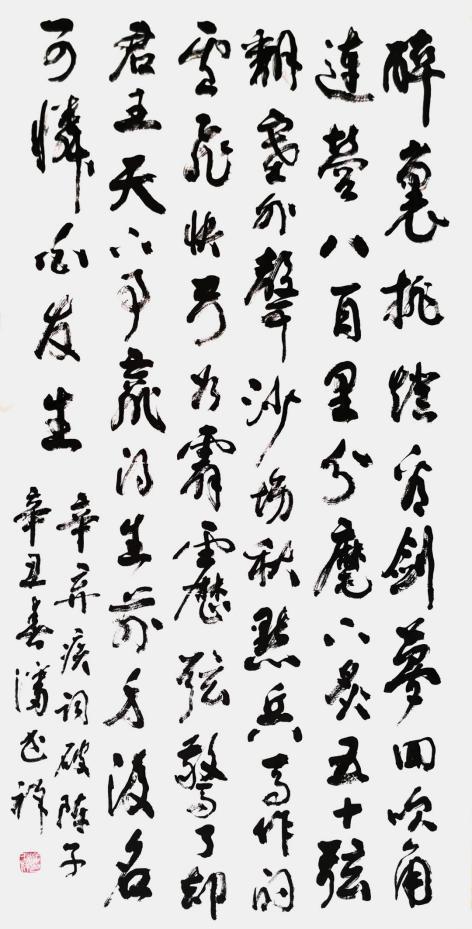 醉裏挑燈看劍夢回吹角
連營八百里分麾下炙五十弦
翻塞外聲沙場秋點兵馬作的
盧飛快弓如霹靂弦驚了却
君王天下事贏得生前身後名
可憐白发生
辛弃疾詞破陣子
辛丑春潘志